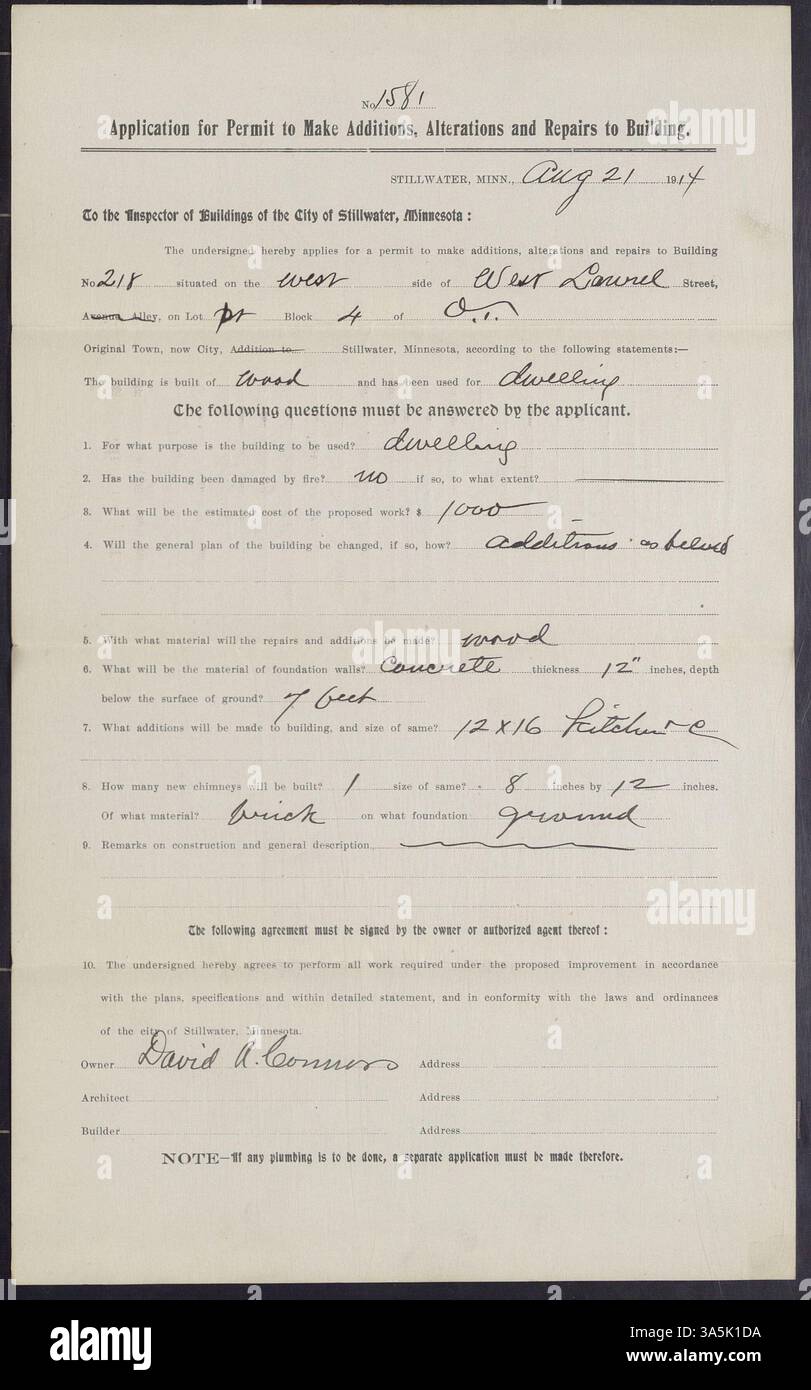 No 1581
Application for Permit to Make Additions, Alterations and Repairs to Building.
STILLWATER, MINN., Aug 21 1914
To the Inspector of Buildings of the City of Stillwater, Minnesota :
The undersigned hereby applies for a permit to make additions, alterations and repairs to Building
No 218 situated on the west side of West Laurel Street,
Avenue Alley, on Lot pt Block 4 of O.T.
Original Town, now City, Addition to Stillwater, Minnesota, according to the following statements:—
The building is built of wood and has been used for dwelling
The following questions must be answered by the applicant.
1. For what purpose is the building to be used? dwelling
2. Has the building been damaged by fire? no if so, to what extent?
3. What will be the estimated cost of the proposed work? $ 1000
4. Will the general plan of the building be changed, if so, how? additions as below
5. With what material will the repairs and additions be made? wood
6. What will be the material of foundation walls? concrete thickness 12" inches, depth
below the surface of ground? 7 feet
7. What additions will be made to building, and size of same? 12 x 16 Kitchen
8. How many new chimneys will be built? 1 size of same? - 8 inches by 12 inches.
Of what material? brick on what foundation ground
9. Remarks on construction and general description
The following agreement must be signed by the owner or authorized agent thereof :
10. The undersigned hereby agrees to perform all work required under the proposed improvement in accordance
with the plans, specifications and within detailed statement, and in conformity with the laws and ordinances
of the city of Stillwater, Minnesota.
Owner David A. Connors Address
Architect Address
Builder Address
NOTE—If any plumbing is to be done, a separate application must be made therefore.
alamy
Image ID: 3A5K1DA
www.alamy.com